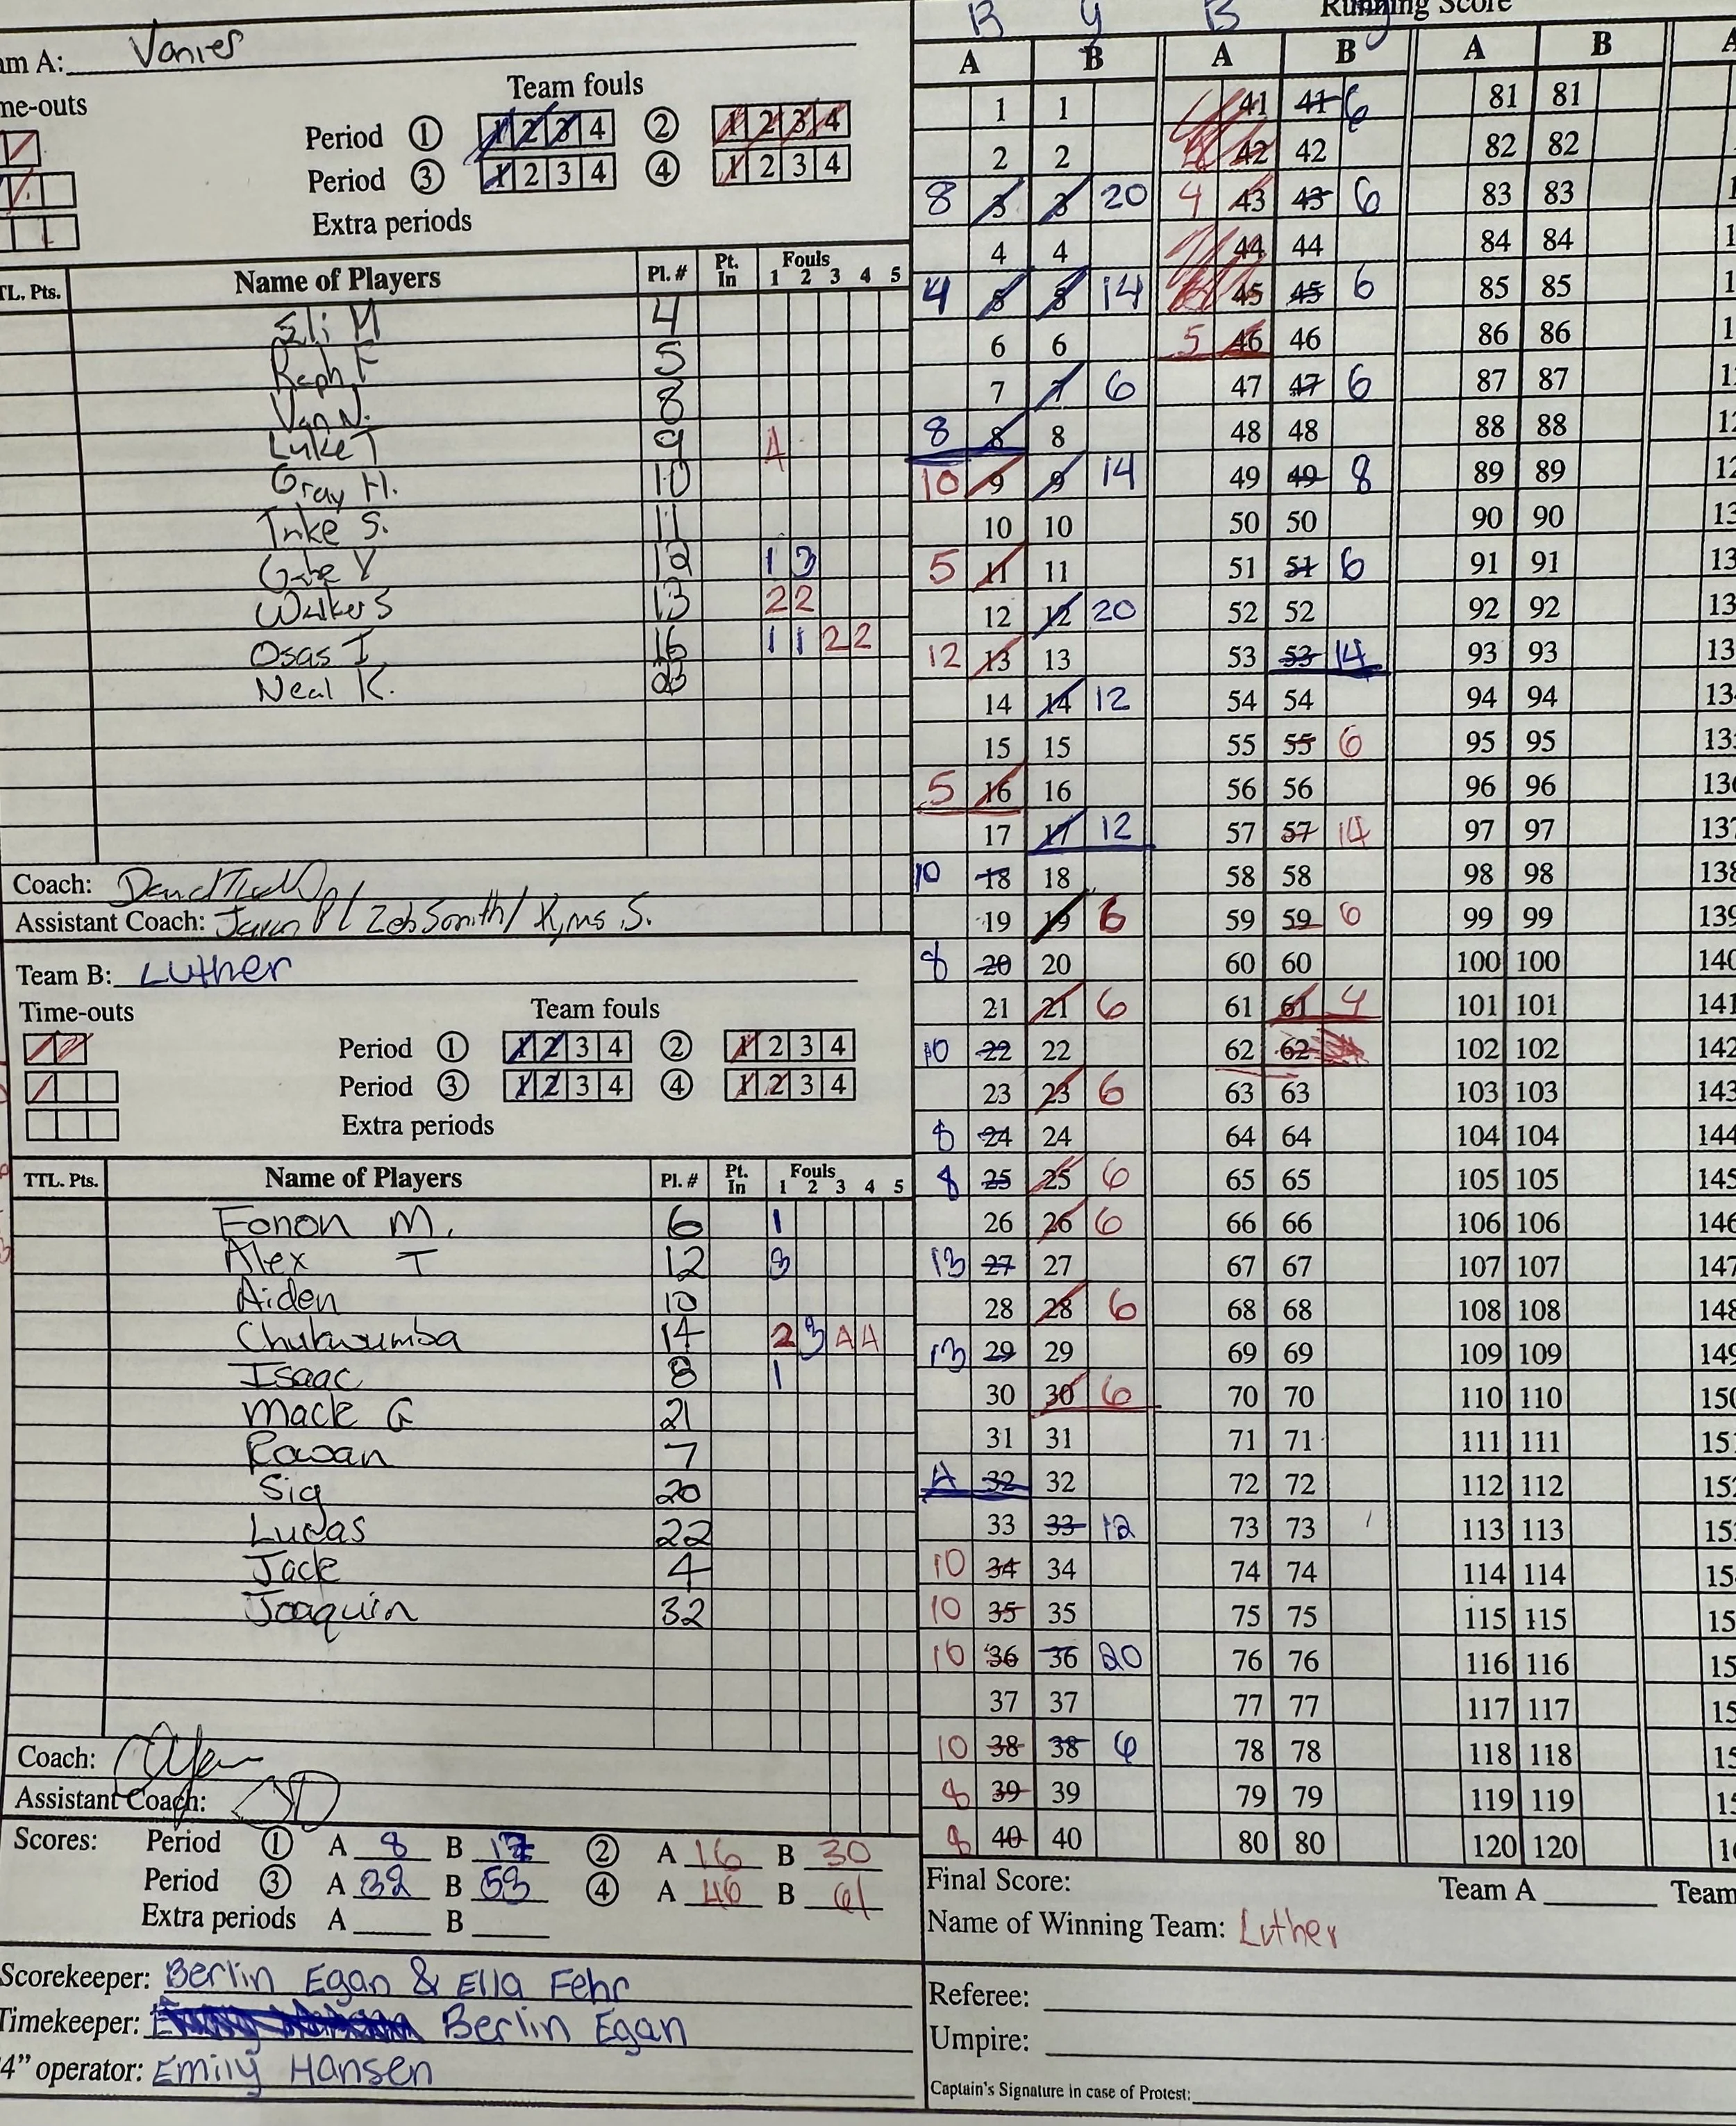 am A: Vanier
me-outs
Team fouls
Period ① 1 2 3 4 ② 1 2 3 4
Period ③ 1 2 3 4 ④ 1 2 3 4
Extra periods
TL. Pts. Name of Players Pl. # Pt. In Fouls 1 2 3 4 5
Eli M 4
Raph F 5
Van N. 8
Luke T 9 4
Gray H. 10
Inke S. 11
Gabe V 12 1 3
Walker S 13 2 2
Osas I. 16 1 1 2 2
Neal K. 23
Coach:
Assistant Coach: / Zeb Smith/
Team B: Luther
Time-outs
Team fouls
Period ① 1 2 3 4 ② 1 2 3 4
Period ③ 1 2 3 4 ④ 1 2 3 4
Extra periods
TTL. Pts. Name of Players Pl. # Pt. In Fouls 1 2 3 4 5
Eonon M. 6 1
Alex T 12 3
Aiden 10
Chukwumba 14 2 3 4 4
Isaac 8 1
Mack G 21
Rowan 7
Sig 20
Lucas 22
Jack 4
Joaquin 32
Coach:
Assistant Coach:
Scores: Period ① A 8 B 17 ② A 16 B 30
Period ③ A 32 B 53 ④ A 46 B 61
Extra periods A B
Scorekeeper: Berlin Egan & Ella Fehr
Timekeeper: Berlin Egan
4” operator: Emily Hansen
Running Score
B y B y
A B A B A B A
1 1 41 41 6 81 81
2 2 42 42 82 82
8 3 3 20 4 43 43 6 83 83
4 4 44 44 84 84
4 5 5 14 45 45 6 85 85
6 6 5 46 46 86 86
7 7 6 47 47 6 87 87
8 8 8 48 48 88 88
10 9 9 14 49 49 8 89 89
10 10 50 50 90 90
5 11 11 51 51 6 91 91
12 12 20 52 52 92 92
12 13 13 53 53 14 93 93
14 14 12 54 54 94 94
15 15 55 55 6 95 95
5 16 16 56 56 96 96
17 17 12 57 57 14 97 97
10 18 18 58 58 98 98
19 19 6 59 59 6 99 99
8 20 20 60 60 100 100
21 21 6 61 61 4 101 101
10 22 22 62 62 102 102
23 23 6 63 63 103 103
8 24 24 64 64 104 104
8 25 25 6 65 65 105 105
26 26 6 66 66 106 106
13 27 27 67 67 107 107
28 28 6 68 68 108 108
13 29 29 69 69 109 109
30 30 6 70 70 110 110
31 31 71 71 111 111
4 32 32 72 72 112 112
33 33 12 73 73 113 113
10 34 34 74 74 114 114
10 35 35 75 75 115 115
10 36 36 20 76 76 116 116
37 37 77 77 117 117
10 38 38 6 78 78 118 118
8 39 39 79 79 119 119
8 40 40 80 80 120 120
Final Score: Team A Team
Name of Winning Team: Luther
Referee:
Umpire:
Captain's Signature in case of Protest: